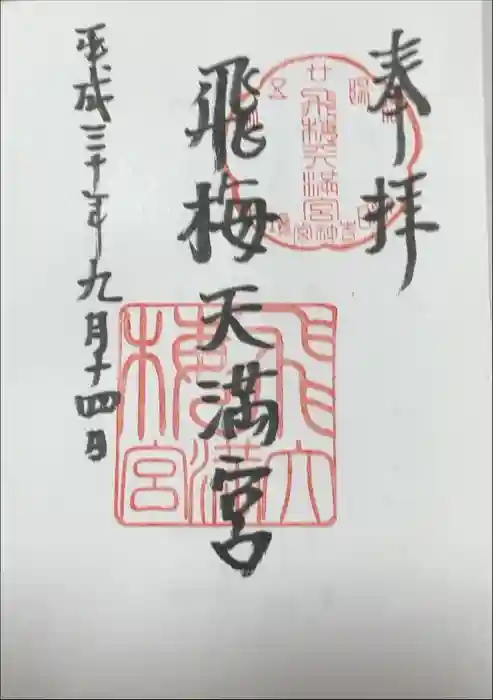 奉拝
飛梅天満宮
平成三十年九月十四日
飛梅天満宮
飛梅天満宮